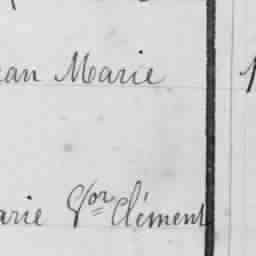 ean Marie
arie Vor Clément